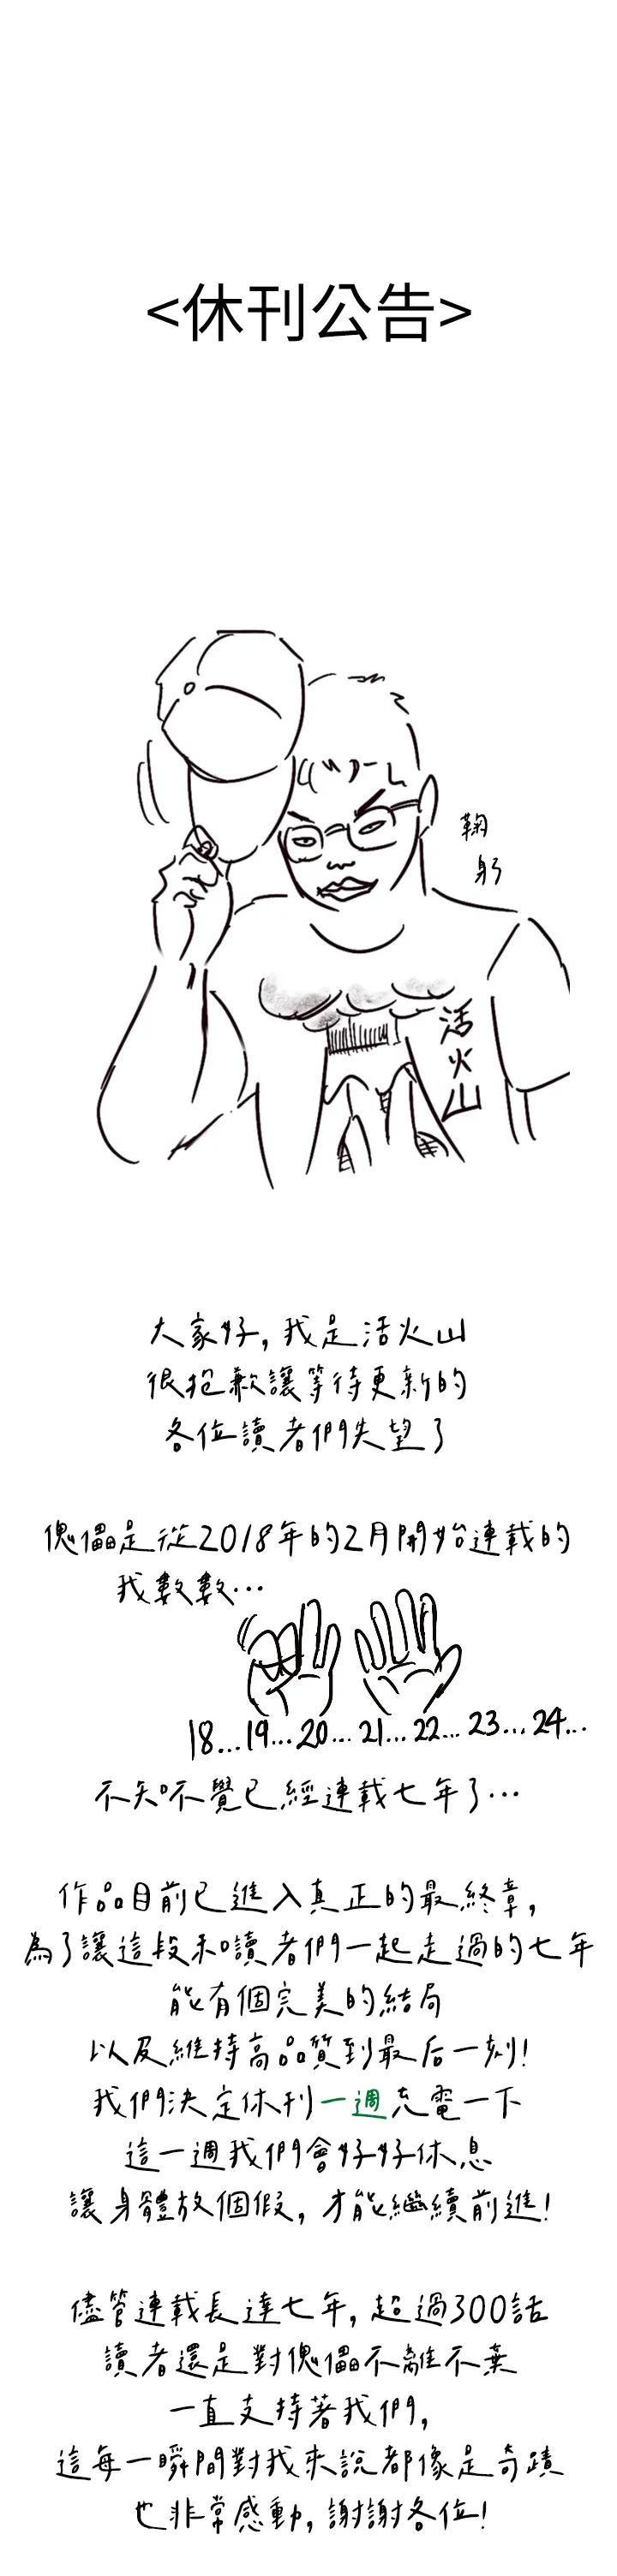 <休刊公告>
鞠
躬
活
火
山
大家好, 我是活火山
很抱歉讓等待更新的
各位讀者們失望了
傀儡是從2018年的2月開始連載的
我數數…
18...19...20...21...22...23...24...
不知不覺已經連載七年了…
作品目前已進入真正的最終章,
為了讓這段和讀者們一起走過的七年
能有個完美的結局
以及維持高品質到最后一刻!
我們決定休刊一週充電一下
這一週我們會好好休息
讓身體放個假, 才能繼續前進!
儘管連載長達七年, 超過300話
讀者還是對傀儡不離不棄
一直支持著我們,
這每一瞬間對我來說都像是奇蹟
也非常感動, 謝謝各位!